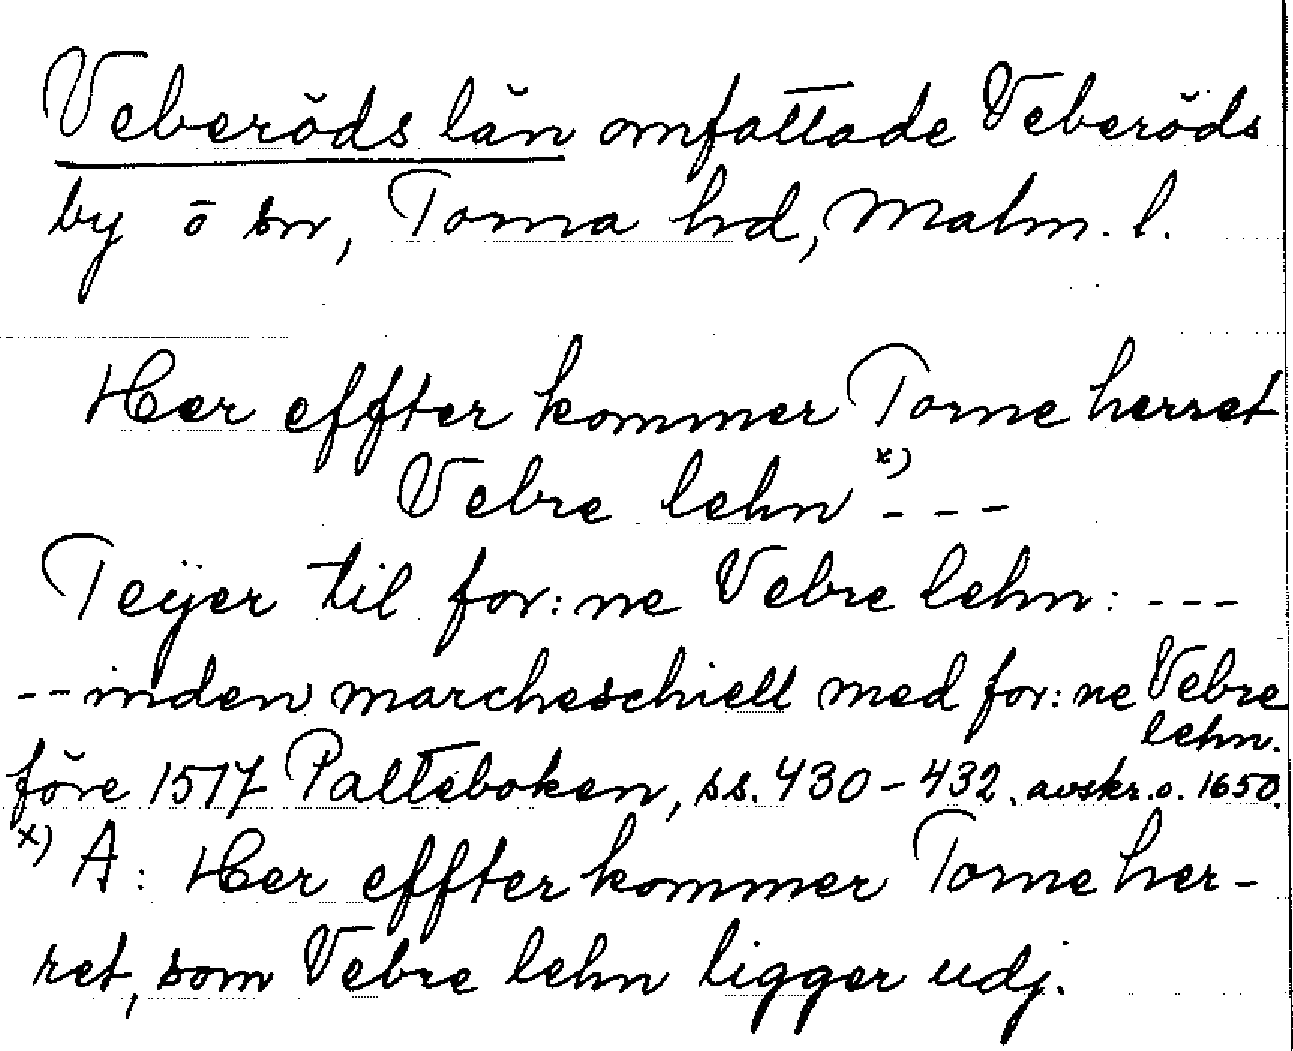 Veberöds län omfattade Veberöds
by o sn, Torna hd, Malm. l.
Her effter kommer Torne herret
Vebre lehn x) - - -
Teÿer til for: ne Vebre lehn: - - -
-- inden marcheschiell med for: ne Vebre
lehn.
före 1517 Palteboken, ss. 430-432. avskr. o. 1650.
x) A: Her effter kommer Torne her-
ret, som Vebre lehn ligger udj.